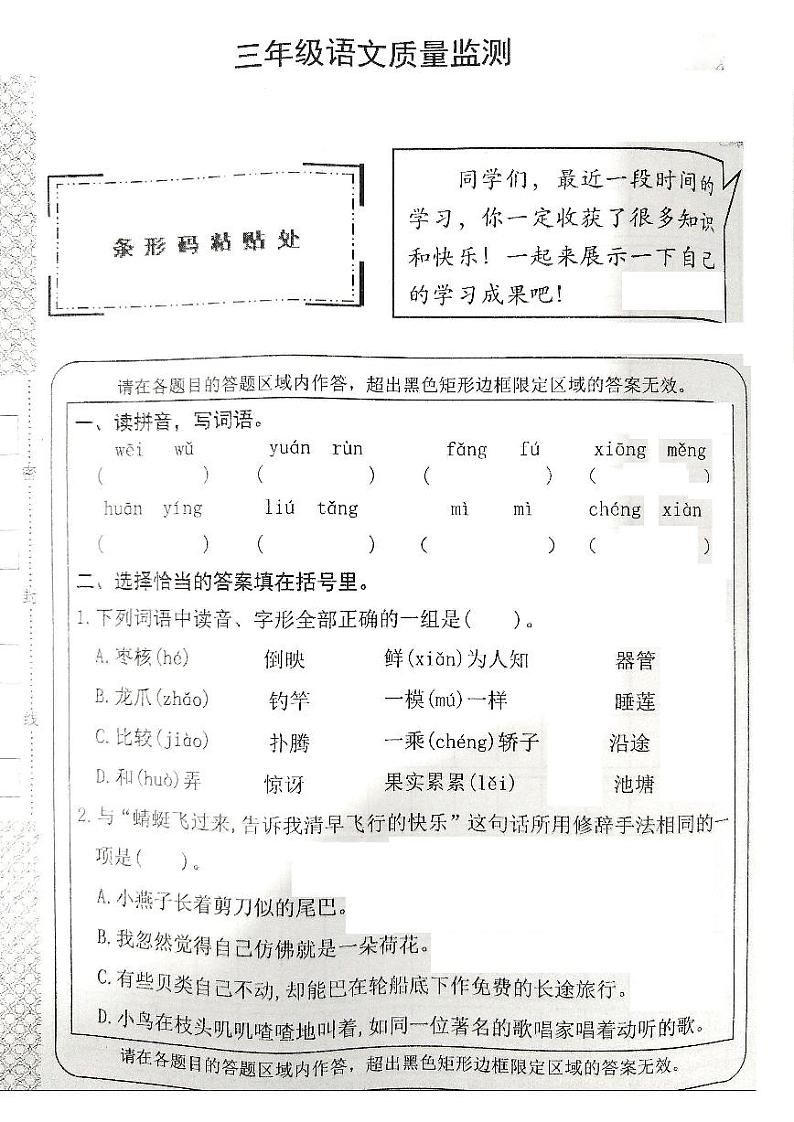 三年级语文质量监测
条形码粘贴处
同学们，最近一段时间的
学习，你一定收获了很多知识
和快乐！一起来展示一下自己
的学习成果吧！
请在各题目的答题区域内作答，超出黑色矩形边框限定区域的答案无效。
一、读拼音，写词语。
wēi wǔ yuán rùn fǎng fú xiōng měng
( ) ( ) ( ) ( )
huān yíng liú tǎng mì mì chéng xiàn
( ) ( ) ( ) ( )
二、选择恰当的答案填在括号里。
1.下列词语中读音、字形全部正确的一组是( )。
A.枣核(hé) 倒映 鲜(xiǎn)为人知 器管
B.龙爪(zhǎo) 钓竿 一模(mú)一样 睡莲
C.比较(jiào) 扑腾 一乘(chéng)轿子 沿途
D.和(huò)弄 惊讶 果实累累(lěi) 池塘
2.与“蜻蜓飞过来,告诉我清早飞行的快乐”这句话所用修辞手法相同的一
项是( )。
A.小燕子长着剪刀似的尾巴。
B.我忽然觉得自己仿佛就是一朵荷花。
C.有些贝类自己不动,却能巴在轮船底下作免费的长途旅行。
D.小鸟在枝头叽叽喳喳地叫着,如同一位著名的歌唱家唱着动听的歌。
请在各题目的答题区域内作答，超出黑色矩形边框限定区域的答案无效。
密
封
线